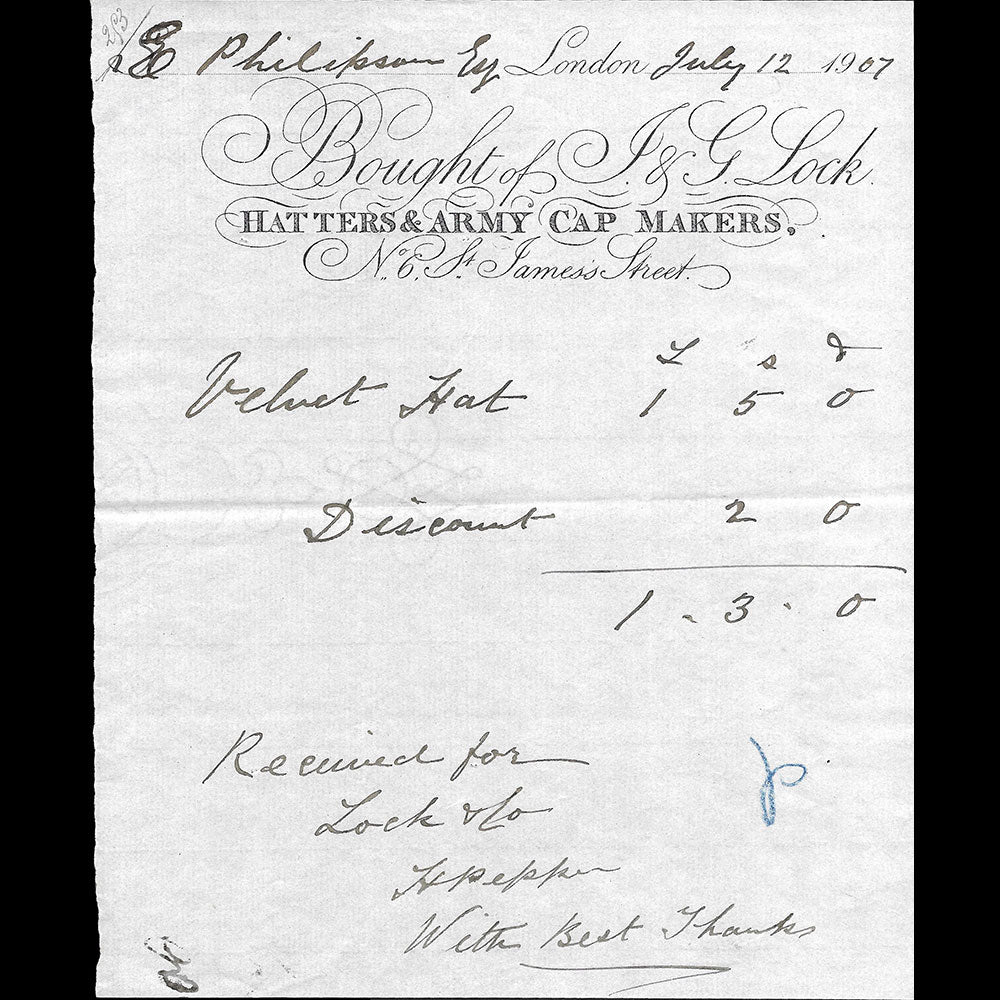 E Philipson Esq London July 12 1907
Bought of J. & G. Lock.
HATTERS & ARMY CAP MAKERS,
No. 6, St. James's Street.
£ s d
Velvet Hat 1 5 0
Discount 2 0
1 . 3 . 0
Received for
Lock & Co
H Pepper
With Best Thanks